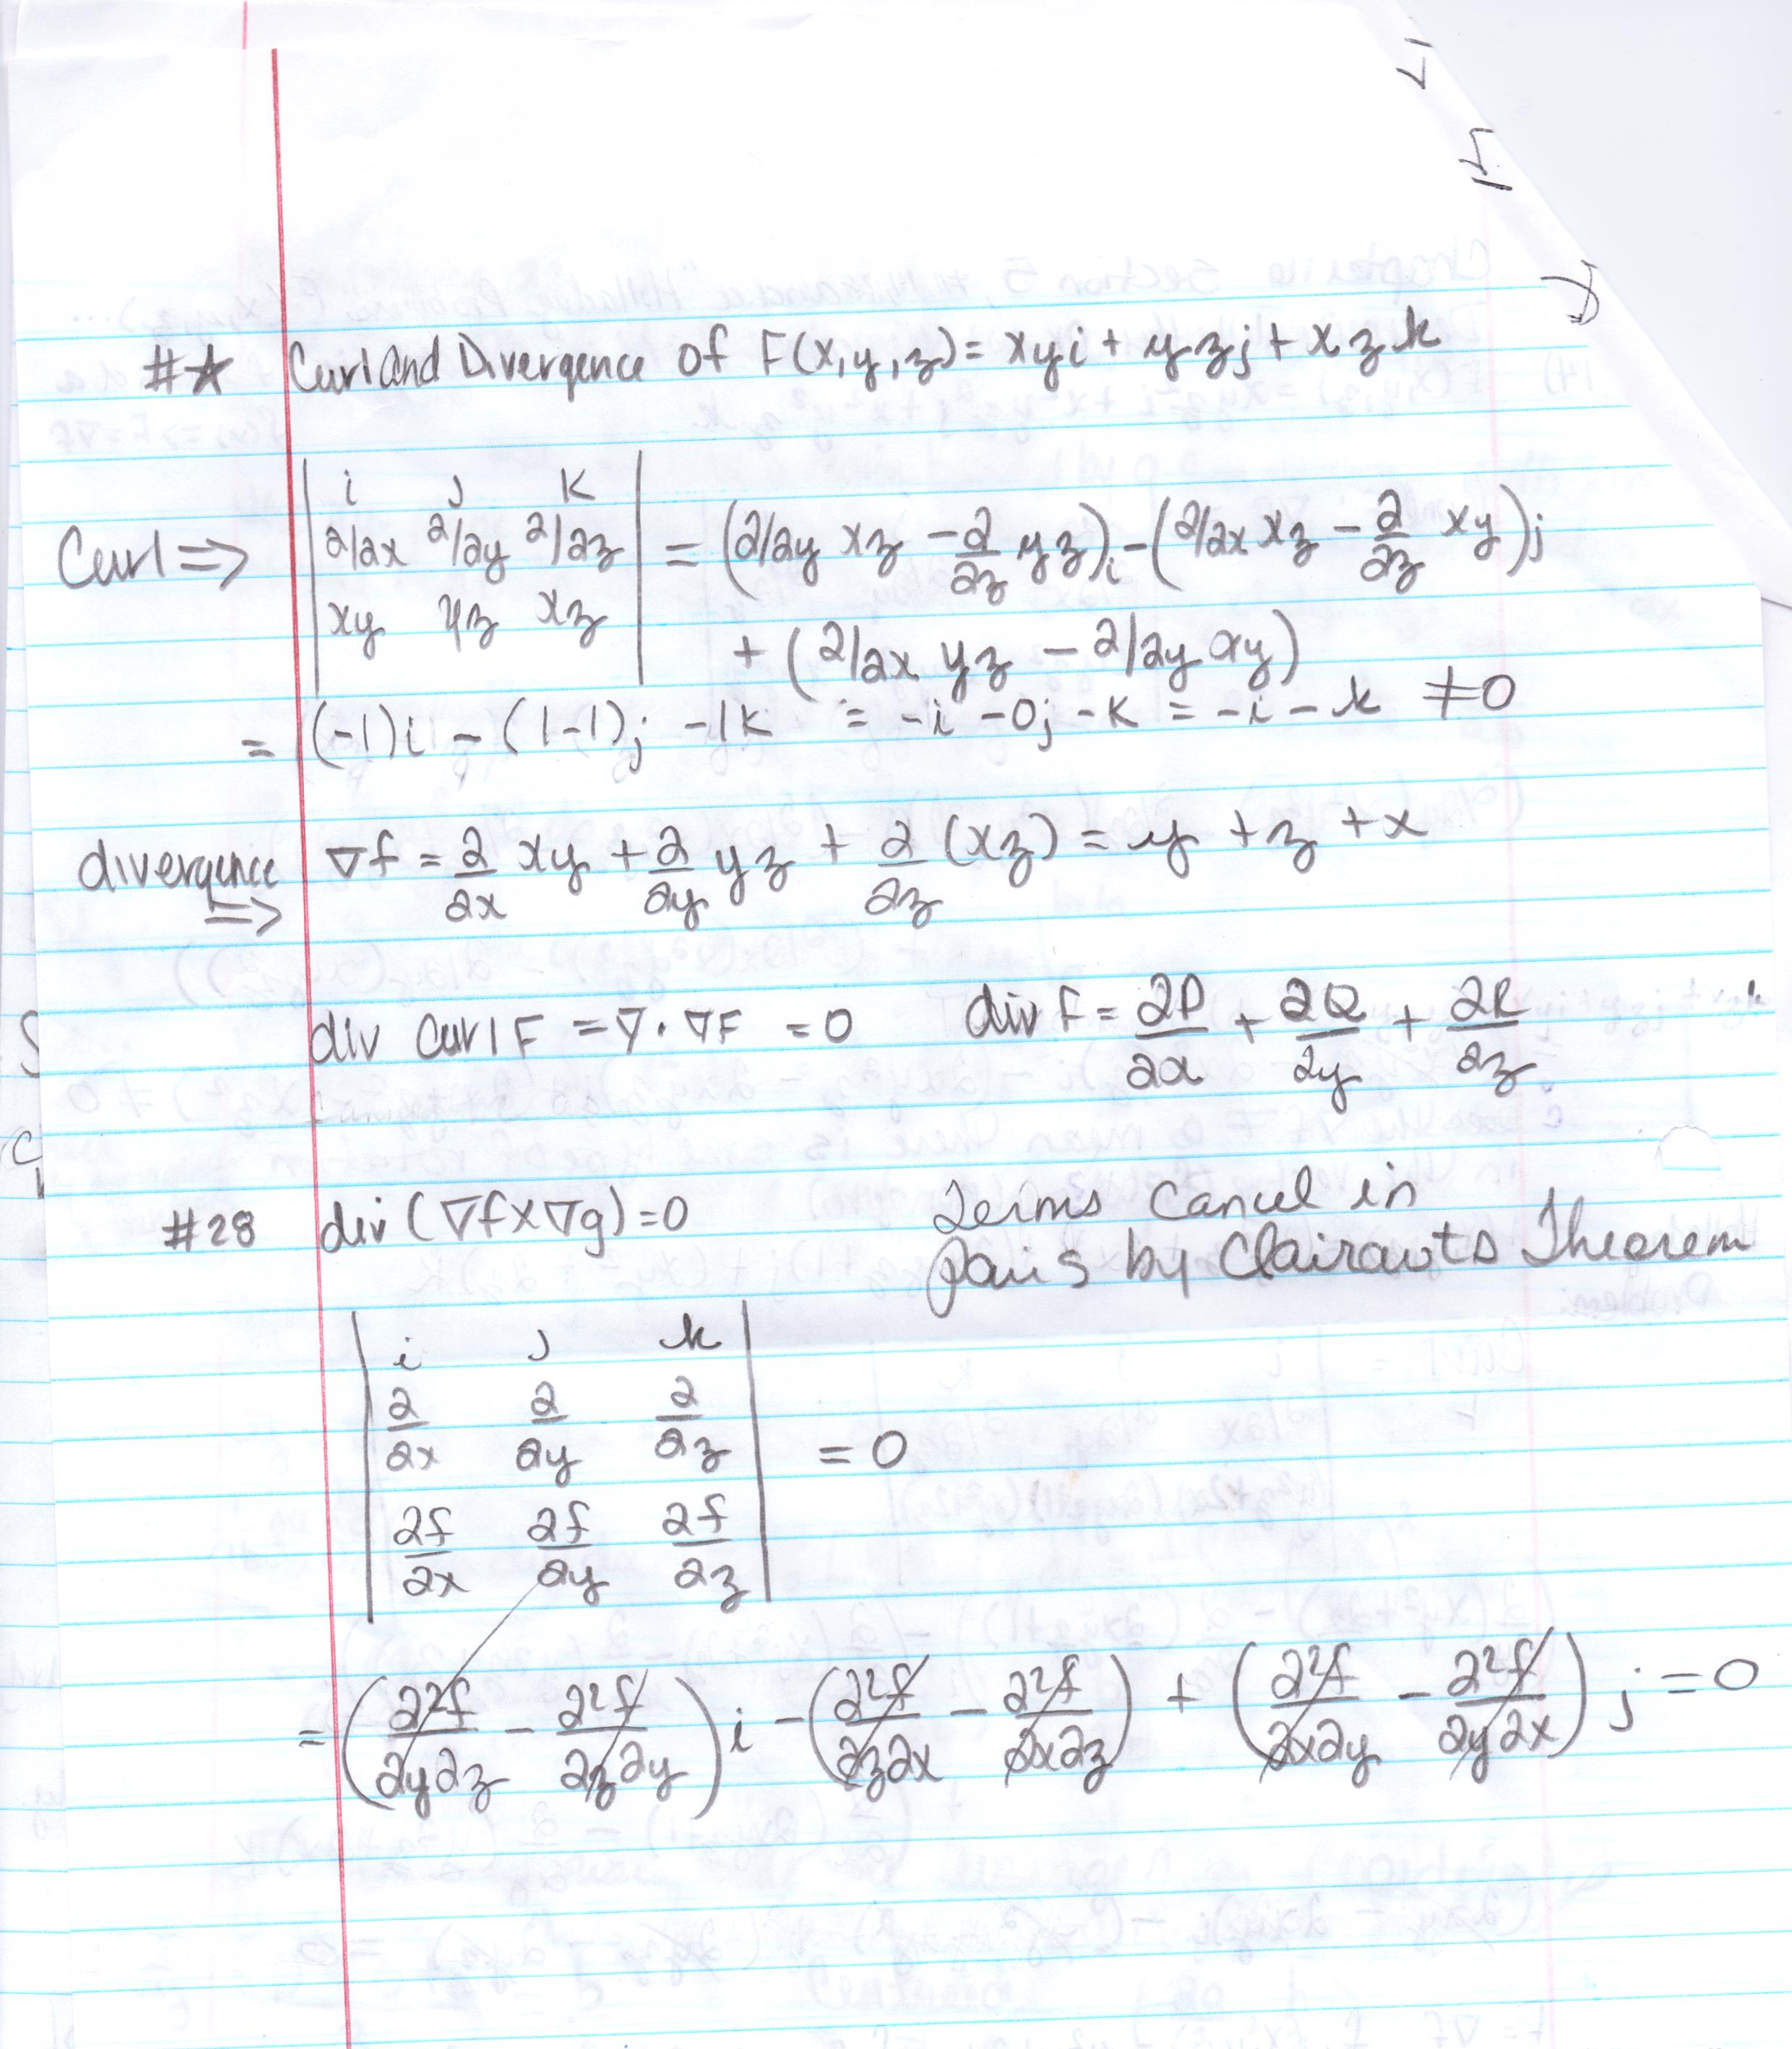 #☆ Curl and Divergence of F(x,y,z) = xyi + yzj + xzk
Curl ⇒ | i j k ; ∂/∂x ∂/∂y ∂/∂z ; xy yz xz | = (∂/∂y xz - ∂/∂z yz)i - (∂/∂x xz - ∂/∂z xy)j
+ (∂/∂x yz - ∂/∂y xy)
= (-1)i - (1-1)j -1k = -i -0j -k = -i - k ≠ 0
divergence ⇒ ∇f = ∂/∂x xy + ∂/∂y yz + ∂/∂z (xz) = y + z + x
div curl F = ∇ · ∇F = 0 div F = ∂P/∂x + ∂Q/∂y + ∂R/∂z
#28 div (∇f x ∇g) = 0
Terms Cancel in
pairs by Clairauts Theorem
| i j k |
| ∂/∂x ∂/∂y ∂/∂z | = 0
| ∂f/∂x ∂f/∂y ∂f/∂z |
= (∂²f/∂y∂z - ∂²f/∂z∂y)i - (∂²f/∂z∂x - ∂²f/∂x∂z) + (∂²f/∂x∂y - ∂²f/∂y∂x)j = 0